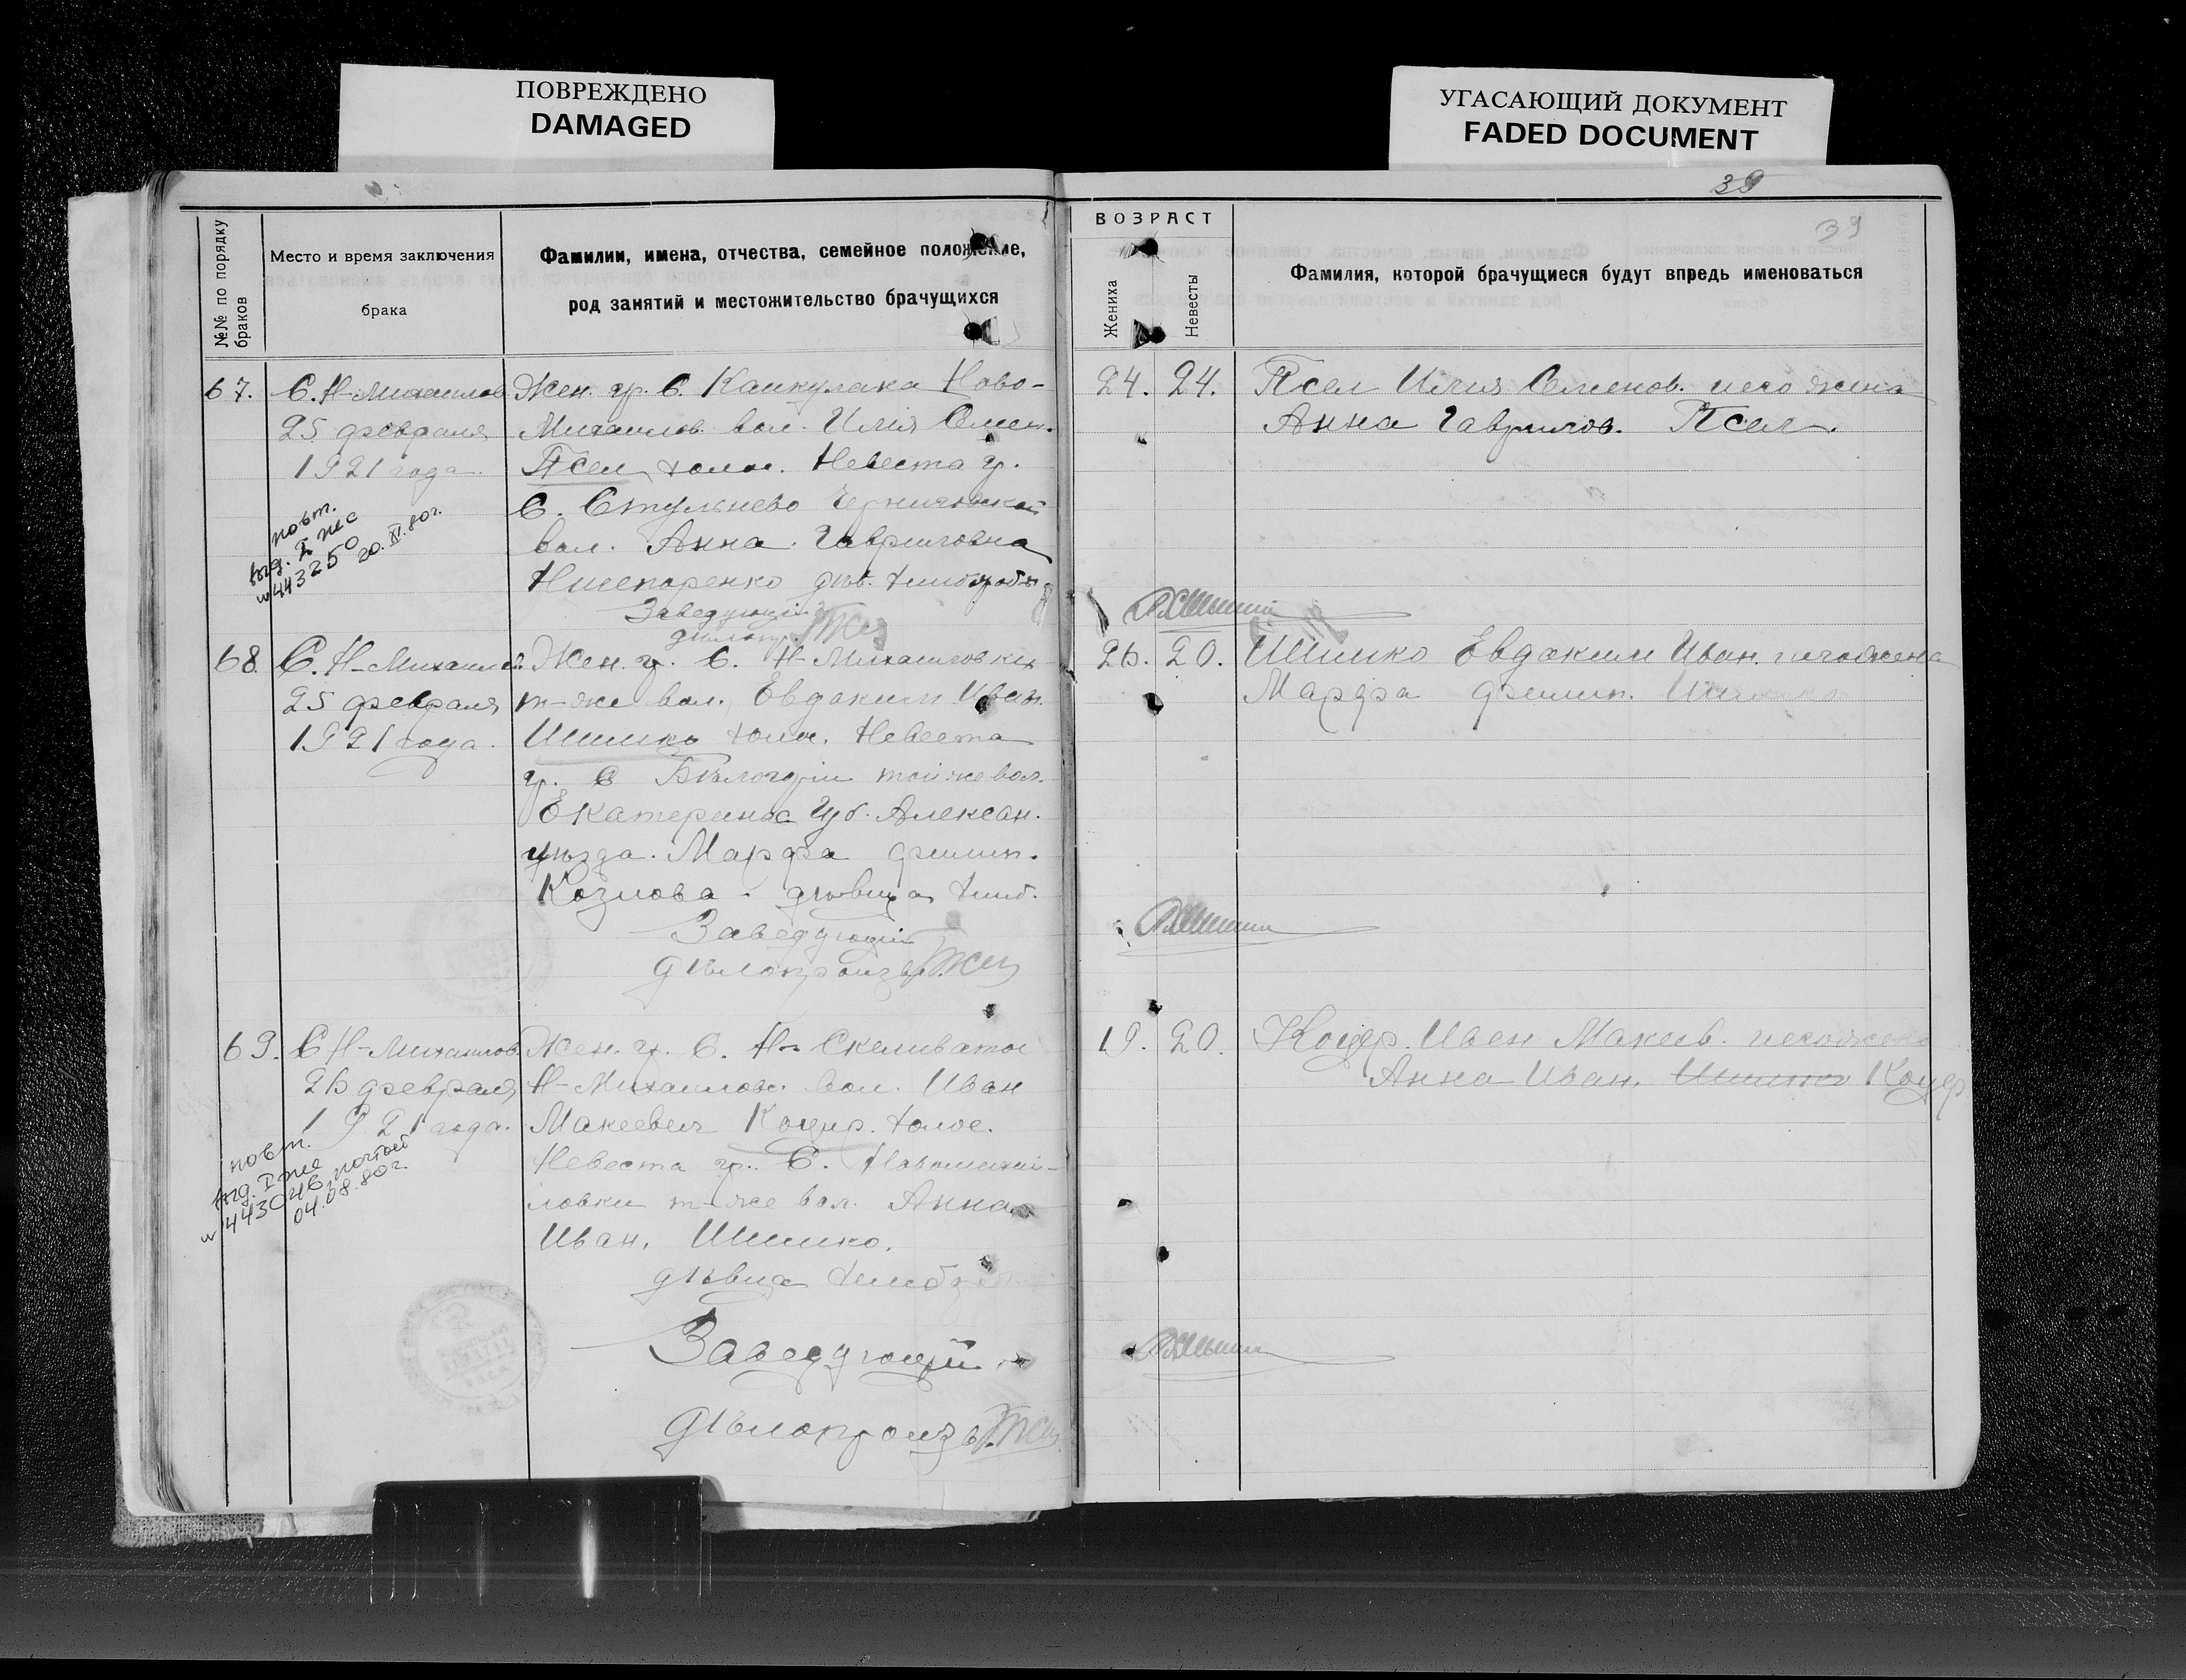 ПОВРЕЖДЕНО
DAMAGED
УГАСАЮЩИЙ ДОКУМЕНТ
FADED DOCUMENT
39
39
№№ по порядку браков
Место и время заключения
брака
Фамилии, имена, отчества, семейное положение,
род занятий и местожительство брачущихся
ВОЗРАСТ
Жениха
Невесты
Фамилия, которой брачущиеся будут впредь именоваться
67.
С. Н-Михаилов
25 февраля
1921 года.
повт.
443250 20.IV.80г.
Жен. гр. С. Канкулака Ново-
Михаилов. вол. Илія Семен.
Псел холос. Невеста гр.
С. Стульнево Черниговской
вол. Анна Гавриловна
дѣв.
Заведующій
24. 24.
Псел Илия Семенов. и его жена
Анна Гаврилов. Псел.
68.
С. Н-Михаилов.
25 февраля
1921 года.
Жен. гр. С. Н-Михаиловки
т-же вол. Евдаким Иван.
Шишко холос. Невеста
гр. С Бѣлогоріи той же вол.
Екатеринос Губ. Алексан.
уѣзда. Марфа Филип.
Козлова - дѣвица хлеб.
Заведующій
Дѣлопроизв.
26. 20.
Шишко Евдаким Иван. и его жена
Марфа Филип. Шишко
69.
С Н-Михаилов.
26 февраля
1921 года.
повт.
443046, почтой
04.08.80г.
Жен. гр. С. Н-Скеливатое
Н-Михаилов. вол. Иван
Макеевич Коцур. холос.
Невеста гр. С. Новомихаи-
ловки т-же вол. Анна
Иван. Шишко.
дѣвица
Заведующій
Дѣлопроизв.
19. 20.
Коцур. Иван Макеев. и его жена
Анна Иван. Шишко Коцур